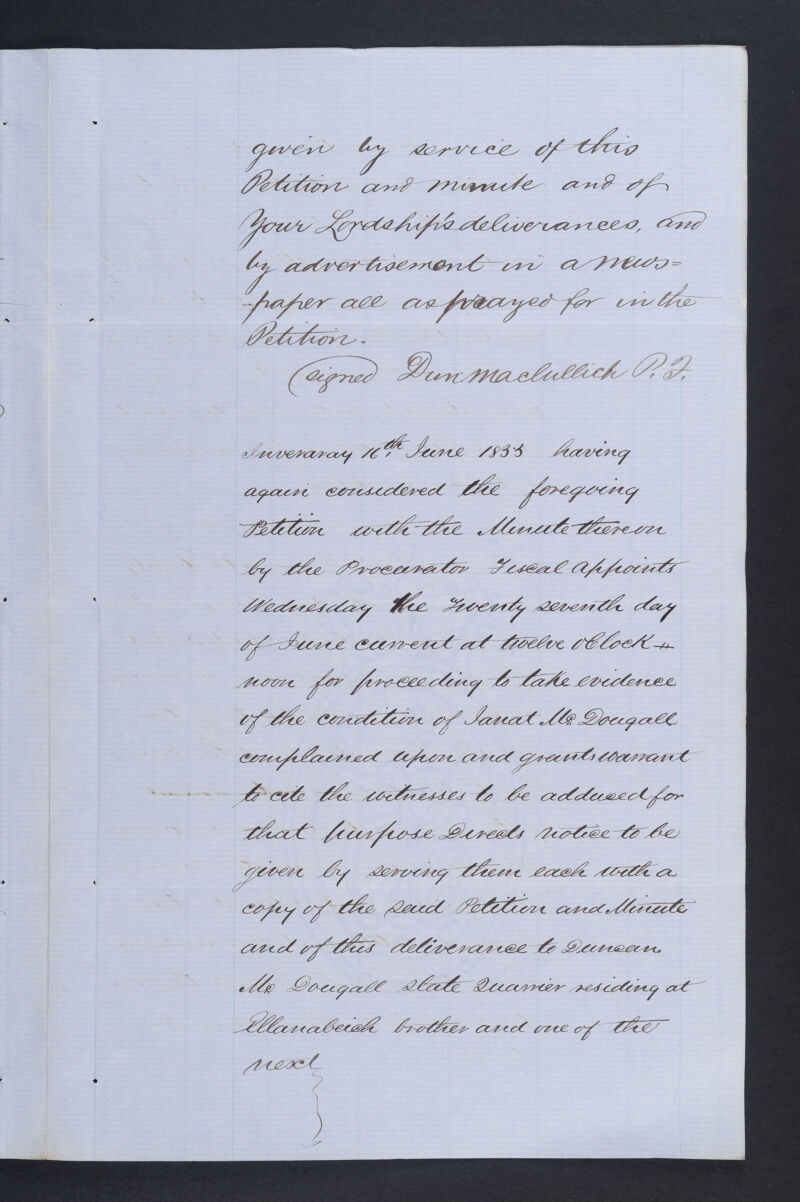 given by service of this
Petition and minute and of
Your Lordship's deliverances, and
by advertisement in a news=
-paper all as prayed for in the
Petition.
(signed Dun MacLullich P. F.
Inveraray 16th June 1855 having
again considered the foregoing
Petition with the Minute thereon
by the Procurator Fiscal Appoints
Wednesday the Twenty seventh day
of June current at twelve oClock
noon for proceeding to take evidence
of the condition of Janat Mc Dougall
complained upon and grants warrant
to cite the witnesses to be adduced for
that purpose Directs notice to be
given by serving them each with a
copy of the said Petition and Minute
and of this deliverance to Duncan
Mc Dougall Slate Quarrier residing at
Ellanabeich brother and one of the
next